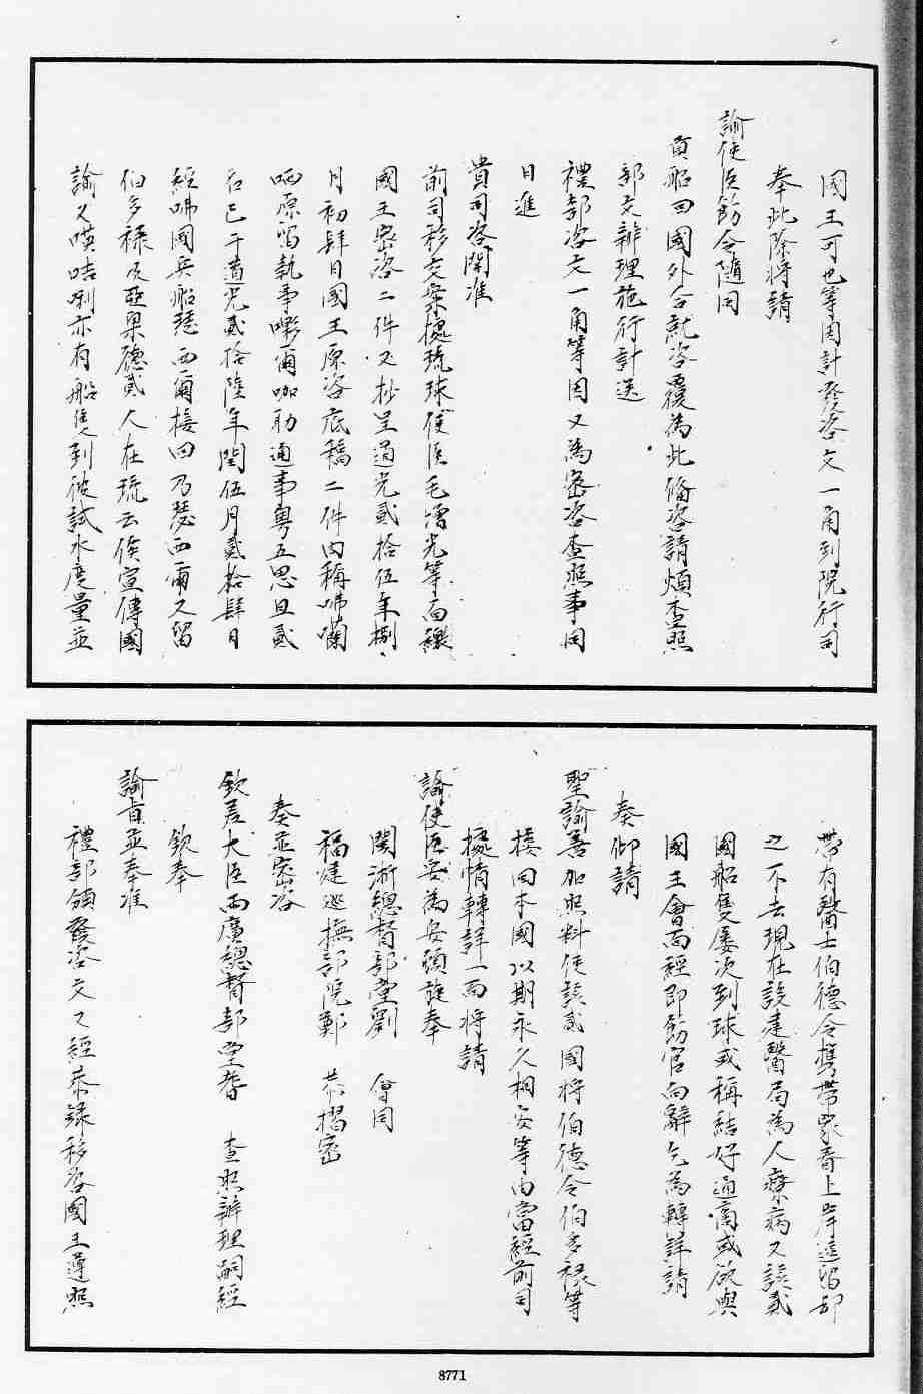 國王可也等因計發咨文一角到院行司
奉此除將請
諭使臣飭令隨同
貢船回國外合就咨覆為此備咨請煩查照
部文辦理施行計送
禮部咨文一角等因又為密咨查照事同
日進
貴司咨開准
前司移交案據琉球使臣毛增光等面繳
國王密咨二件又抄呈道光貳拾伍年捌
月初肆日國王原咨底稿二件內稱咈囒
哂原留執事嘞爾咖助通事粤五思旦貳
名已于道光貳拾陸年閏伍月貳拾肆日
經咈國兵船瑟西爾接回乃瑟西爾又留
伯多祿及亞杲德貳人在琉云俟宣傳國
諭又𠸄咭唎亦有船隻到彼試水度量並
帶有醫士伯德令携帶眾眷上岸逗留却
之不去現在設建醫局為人療病又該貳
國船隻屢次到球或稱結好通商或欲與
國王會面經即飭官向辭乞為轉詳請
奏仰請
聖諭善加照料使該貳國將伯德令伯多祿等
接回本國以期永久相安等由當經前司
據情轉詳一面將請
諭使臣妥為安頓旋奉
閩浙總督部堂劉 會同
福建巡撫部院鄭 恭摺密
奏並密咨
欽差大臣兩廣總督部堂耆 查照辦理嗣經
欽奉
諭旨並奉准
禮部頒發咨文又經恭錄移咨國王遵照
8771